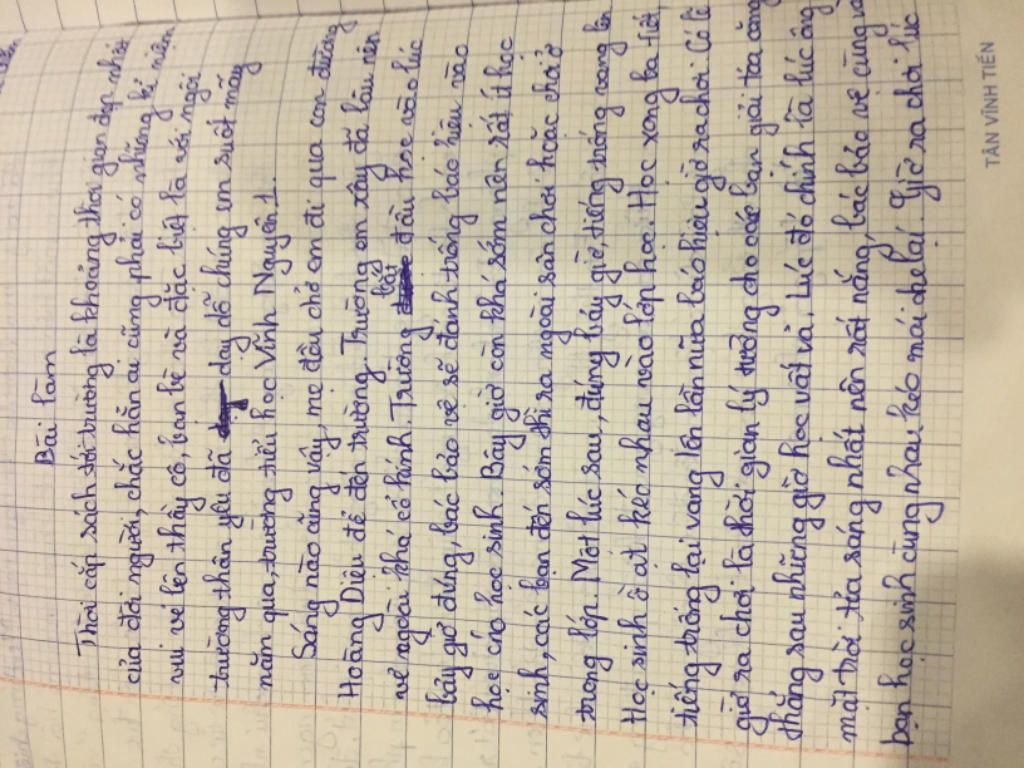 Bài làm
Thời cấp sách tới trường là khoảng thời gian đẹp nhất
của đời người, chắc hẳn ai cũng phải có những kỉ niệm
vui vẻ bên thầy cô, bạn bè và đặc biệt là với ngôi
trường thân yêu đã dạy dỗ chúng em suốt mấy
năm qua, trường tiểu học Vĩnh Nguyên 1.
Sáng nào cũng vậy, mẹ đều chở em đi qua con đường
Hoàng Diệu để đến trường. Trường em xây đã lâu nên
vẻ ngoài khá cổ kính. Trường bắt đầu học vào lúc
bảy giờ đúng, bác bảo vệ sẽ đánh trống báo hiệu vào
học cho học sinh. Bây giờ còn khá sớm nên rất ít học
sinh, các bạn đến sớm thì ra ngoài sân chơi hoặc chơi ở
trong lớp. Một lúc sau, đúng bảy giờ, tiếng trống vang lên
Học sinh ồ ạt kéo nhau vào lớp học. Học xong ba tiết,
tiếng trống lại vang lên lần nữa báo hiệu giờ ra chơi. Có lẽ
giờ ra chơi là thời gian lý tưởng cho các bạn giải tỏa căng
thẳng sau những giờ học vất vả. Lúc đó chính là lúc ông
mặt trời tỏa sáng nhất nên rất nắng, bác bảo vệ cùng
bạn học sinh cùng nhau kéo mái che lại. Giờ ra chơi lúc
TÂN VĨNH TIẾN